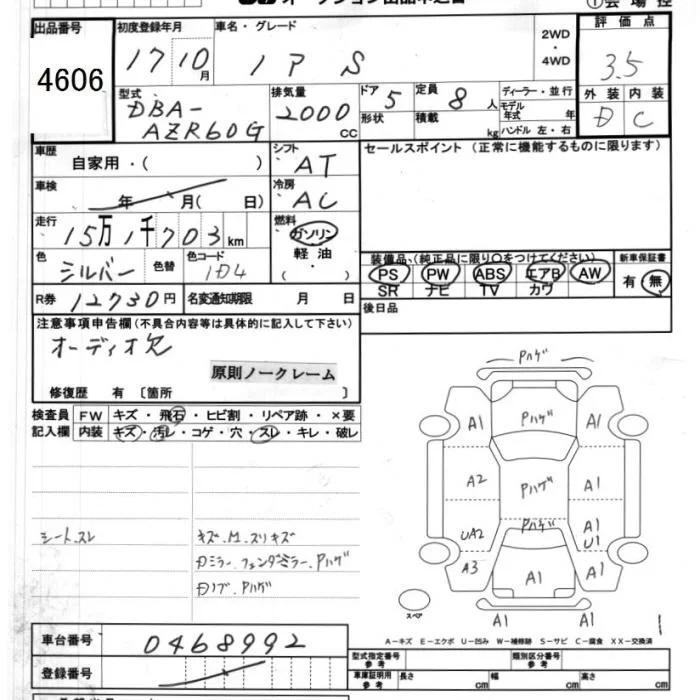 出品番号
4606
初度登録年月
17 10 月
車名・グレード
ノア S
2WD
・
4WD
評価点
3.5
外装 内装
D C
型式
DBA-
AZR60G
排気量
2000 cc
ドア 5
形状
定員 8 人
積載 kg
ディーラー・並行
モデル
年式 年
ハンドル 左・右
車歴
自家用・( )
シフト
AT
セールスポイント (正常に機能するものに限ります)
車検
年 月( 日)
冷房
AC
走行
15万1千703km
燃料
ガソリン
軽油
( ・ )
色
シルバー
色替
色コード
1D4
装備品、(純正品に限り〇をつけてください)
PS PW ABS エアB AW
SR ナビ TV カワ
新車保証書
有 無
R券 12730円
名変通知期限 月 日
後日品
注意事項申告欄(不具合内容等は具体的に記入して下さい)
オーディオ欠
原則ノークレーム
修復歴 有 〔箇所 〕
検査員
記入欄
FW キズ・飛石・ヒビ割・リペア跡・×要
内装 キズ・汚レ・コゲ・穴・スレ・キレ・破レ
シートスレ
キズ.M.スリキズ
Dミラー.フェンダミラー.Pハゲ
Dノブ.Pハゲ
Pハゲ
A1 Pハゲ A1
A2 Pハゲ A1
Pハゲ
UA2 A1
U1
A3 A1 A1
A1 A1
スペア
1
A-キズ E-エクボ U-凹み W-補修跡 S-サビ C-腐食 XX-交換済
車台番号
0468992
登録番号
型式指定番号
参考
類別区分番号
参考
車庫証明用
参考
長さ cm
幅 cm
高さ cm